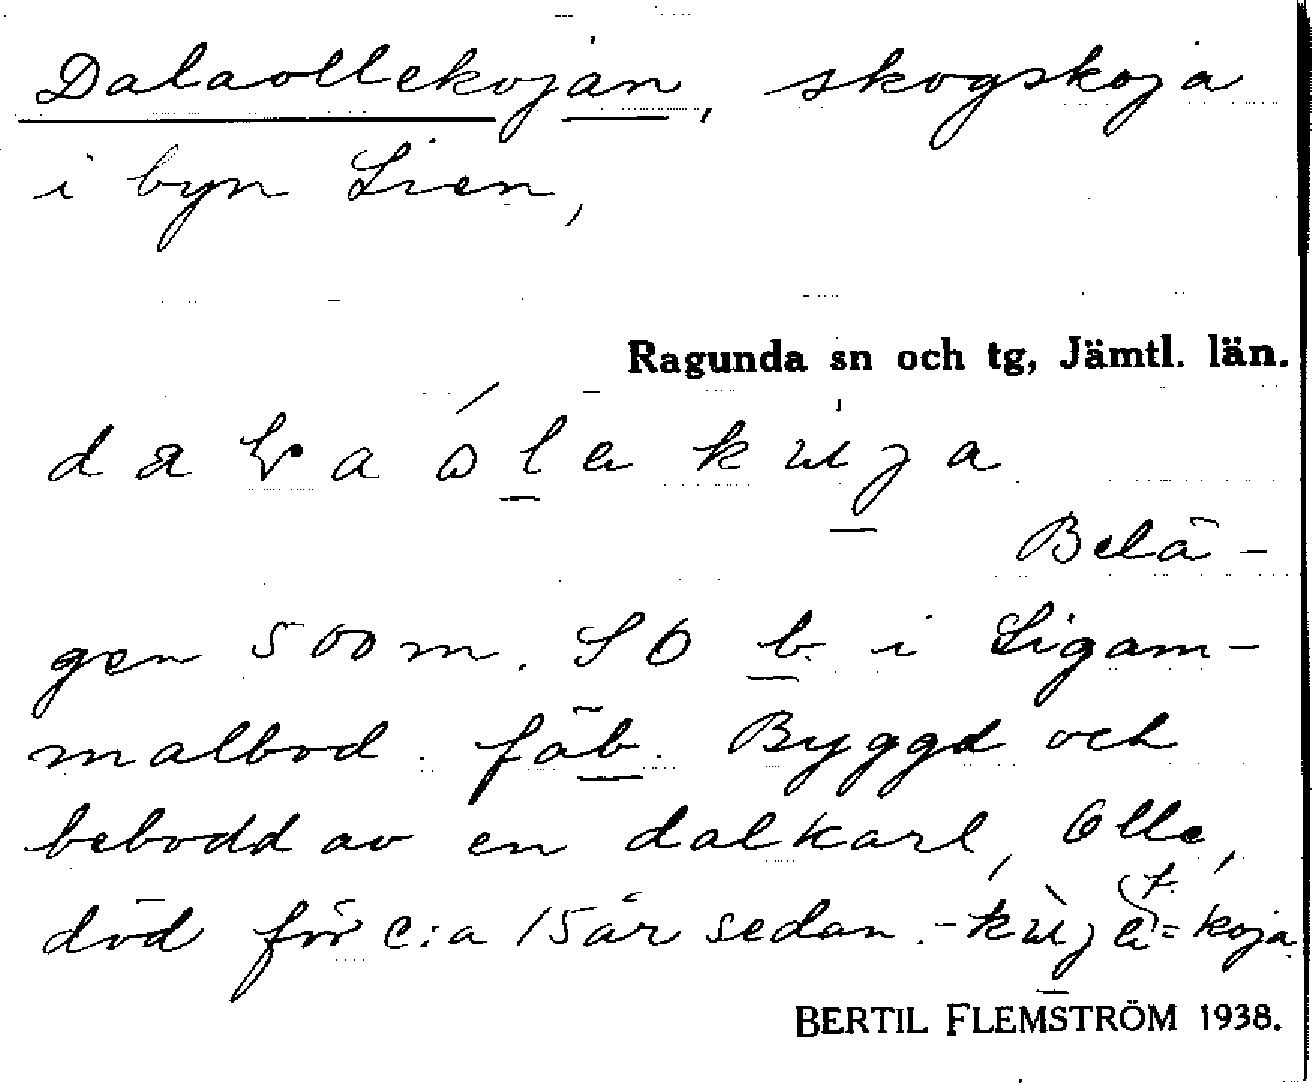 Dalaollekojan, skogskoja
i byn Lien,
Ragunda sn och tg, Jämtl. län.
Belä-
gen 500 m. SÖ b. i Ligam-
malbod. fäb. Byggd och
bebodd av en dalkarl, Olle,
död för c:a 15 år sedan. - = koja
BERTIL FLEMSTRÖM 1938.